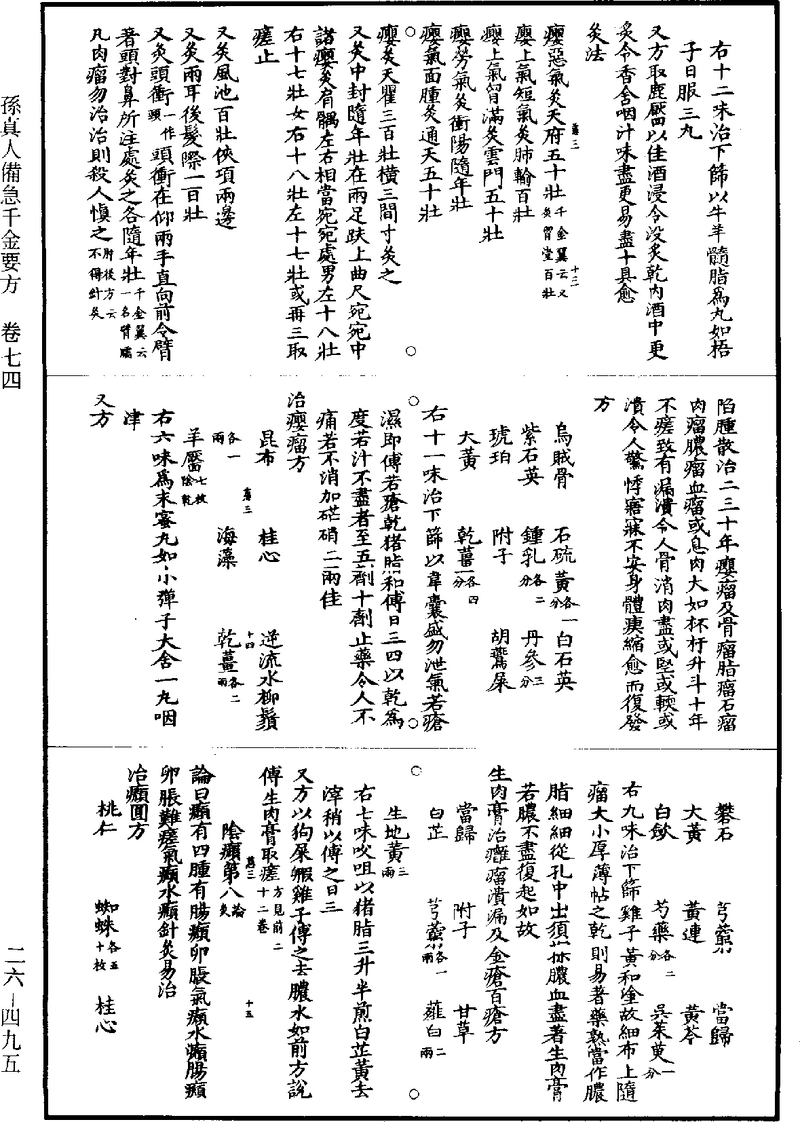 右十二味治下篩以牛羊髓脂為丸如梧
子日服三丸
又方取鹿靨以佳酒浸令沒炙乾內酒中更
炙令香含咽汁味盡更易盡十具愈
灸法
癭惡氣灸天府五十壯千金翼云又灸胷堂百壯
癭上氣短氣灸肺輸百壯
癭上氣胷滿灸雲門五十壯
癭勞氣灸衝陽隨年壯
癭氣面腫灸通天五十壯
癭灸天瞿三百壯橫三間寸灸之
又灸中封隨年壯在兩足趺上曲尺宛宛中
諸癭灸肩髃左右相當宛宛處男左十八壯
右十七壯女右十八壯左十七壯或再三取
瘥止
又灸風池百壯俠項兩邊
又灸兩耳後髮際一百壯
又灸頭衝一作頭衝頭衝在仰兩手直向前令臂
著頭對鼻所注處灸之各隨年壯千金翼云一名臂臑
凡肉瘤勿治治則殺人慎之肘後方云不得針灸
陷腫散治二三十年癭瘤及骨瘤脂瘤石瘤
肉瘤膿瘤血瘤或息肉大如杯杅升斗十年
不瘥致有漏潰令人骨消肉盡或堅或軟或
潰令人驚悸寤寐不安身體瘈縮愈而復發
方
烏賊骨 石硫黃各一分 白石英
紫石英 鍾乳各二分 丹參三分
琥珀 附子 胡鷰屎
大黃 乾薑各四分
右十一味治下篩以韋囊盛勿泄氣若瘡
濕即傅若瘡乾猪脂和傅日三四以乾為
度若汁不盡者至五劑十劑止藥令人不
痛若不消加芒硝二兩佳
治癭瘤方
昆布 桂心 逆流水柳鬚
各一兩 海藻 乾薑各二兩
羊靨七枚陰乾
右六味為末蜜丸如小彈子大含一丸咽
津
又方
礬石 芎藭 當歸
大黃 黃連 黃芩
白斂 芍藥各二分 吳茱萸一分
右九味治下篩雞子黃和塗故細布上隨
瘤大小厚薄帖之乾則易著藥熟當作膿
脂細細從孔中出須探膿血盡著生肉膏
若膿不盡復起如故
生肉膏治癰瘤潰漏及金瘡百瘡方
當歸 附子 甘草
白芷 芎藭各一兩 薤白二兩
生地黃三兩
右七味㕮咀以猪脂三升半煎白芷黃去
滓稍以傅之日三
又方以狗屎䴡雞子傅之去膿水如前方說
傅生肉膏取瘥方見前二十二卷
陰㿗第八論灸
論曰㿗有四腫有腸㿗卵脹氣㿗水㿗腸㿗
卵脹難瘥氣㿗水㿗針灸易治
治㿗圓方
桃仁 蜘蛛各五十枚 桂心
孫真人備急千金要方 卷七四
二六－四九五